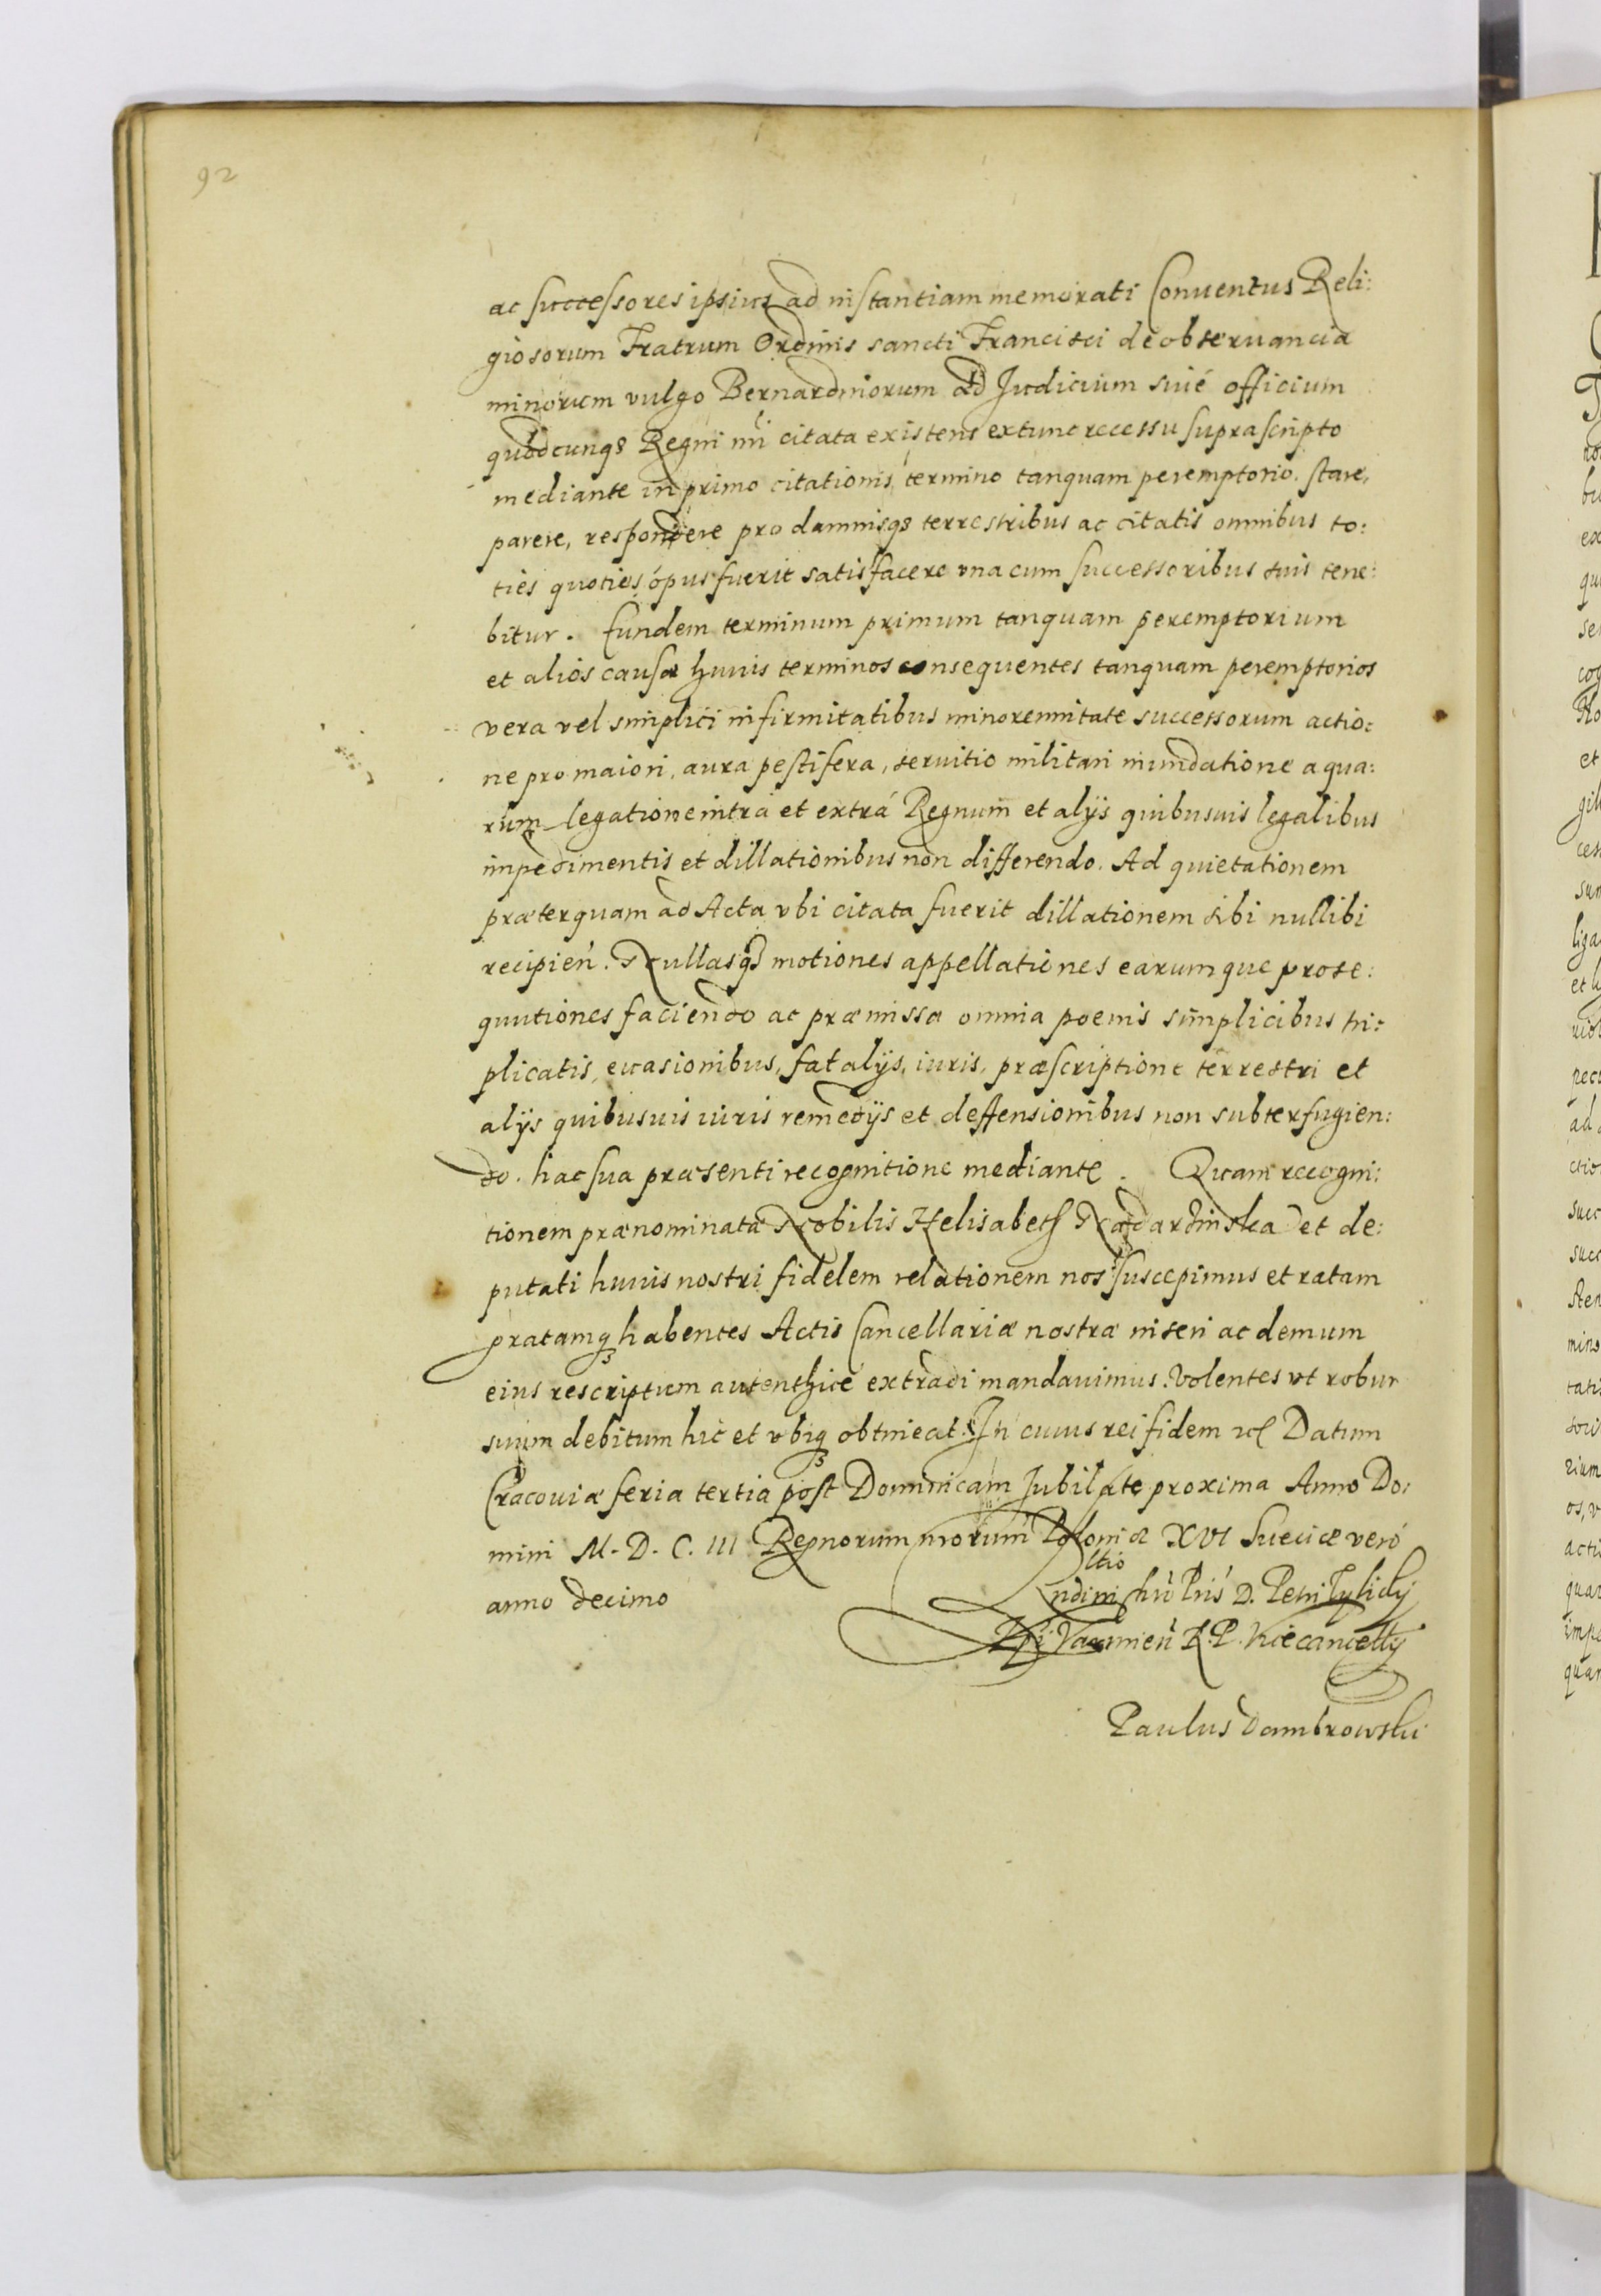 92
ac successores ipsius ad instantiam memorati Conuentus Reli:
giosorum Fratrum Ordinis sancti Francisci de obseruancia
minorum vulgo Bernardinorum ad Judicium siué officium
quodcunq3 Regni nri citata existens extunc recessu suprascripto
mediante in primo citationis termino tanquam peremptorio. stare,
parere, respondere pro damnisq3 terrestribus ac citatis omnibus to:
ties quoties opus fuerit satisfacere vna cum successoribus suis tene:
bitur. Eundem terminum primum tanquam peremptorium
et alios causæ huuis terminos consequentes tanquam peremptorios
vera vel simplici infirmitatibus minorennitate successorum actio:
ne pro maiori, aura pestifera, seruitio militari inundatione aqua:
rum legatione intrá et extrá Regnum et alÿs quibusuis legalibus
impedimentis et dillationibus non differendo. Ad quietationem
præterquam ad Acta vbi citata fuerit dillationem sibi nullibi
recipień. Nullasq3 motiones appellationes earumque prose:
quutiones faciendo ac præmissa omnia poenis simplicibus tri:
plicatis, euasionibus, fatalÿs, iuris, præscriptione terrestri et
alÿs quibusuis iuris remedÿs et deffensionibus non subterfugien:
do. hac sua præsenti recognitione mediante. Quam recogni:
tionem prænominatæ Nobilis Helisabeth Nadardinska et de:
putati huuis nostri fidelem relationem nos suscepimus et ratam
gratamq3 habentes Actis Cancellariæ nostræ inseri ac demum
eius rescriptum autenthicé extradi mandauimus. Volentes vt robur
suum debitum hic et vbiq3 obtineat. In cuuis rei fidem etc Datum
Cracouiæ feria tertia post Dominicam Jubilate proxima Anno Do:
mini M. D. C. III Regnorum nrorum Poloniæ XVI Sueciæ veró
anno decimo
D. Petri Tylicky
R. P. Vicecancelly
Paulus Dambrowsky